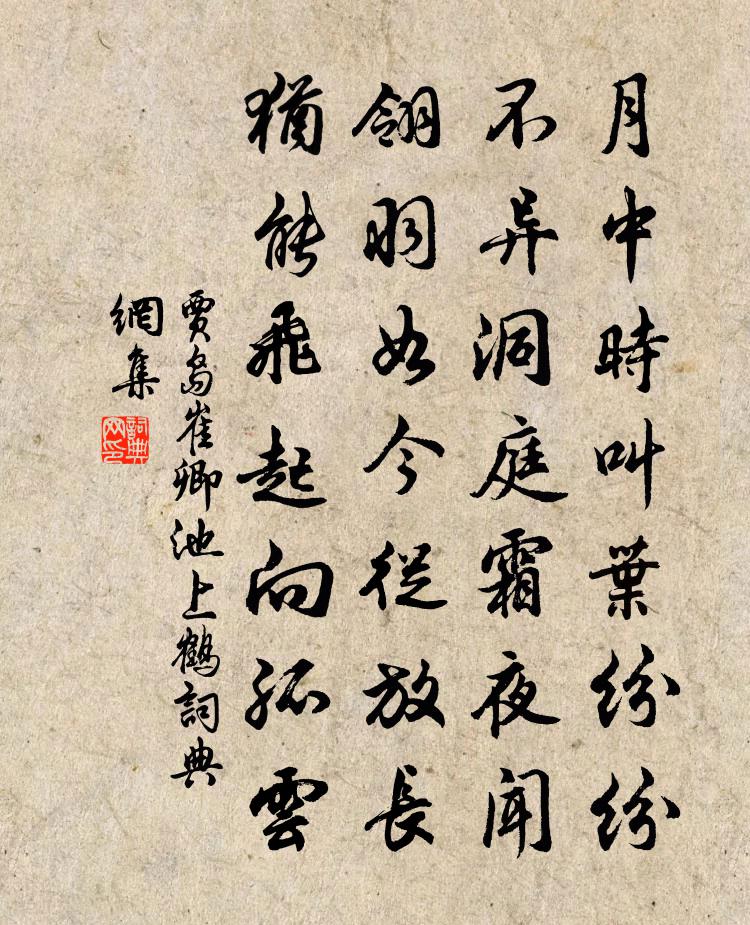 月中時叫葉紛紛
不异洞庭霜夜聞
翎羽如今從放長
猶能飛起向孤雲
賈島崔卿池上鶴詞典
網集
詞典網印